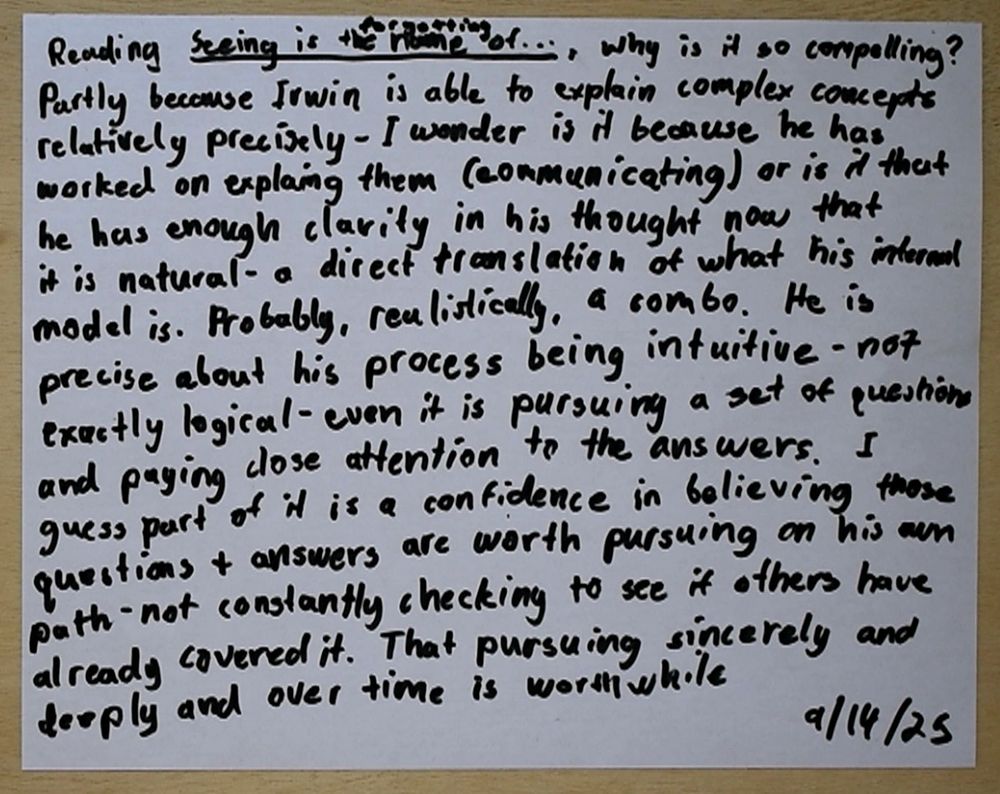 Reading Seeing is the forgetting name of..., why is it so compelling?
Partly because Irwin is able to explain complex concepts
relatively precisely - I wonder is it because he has
worked on explaing them (communicating) or is it that
he has enough clarity in his thought now that
it is natural - a direct translation of what his internal
model is. Probably, realistically, a combo. He is
precise about his process being intuitive - not
exactly logical - even it is pursuing a set of questions
and paying close attention to the answers. I
guess part of it is a confidence in believing those
questions + answers are worth pursuing on his own
path - not constantly checking to see if others have
already covered it. That pursuing sincerely and
deeply and over time is worthwhile
9/14/25